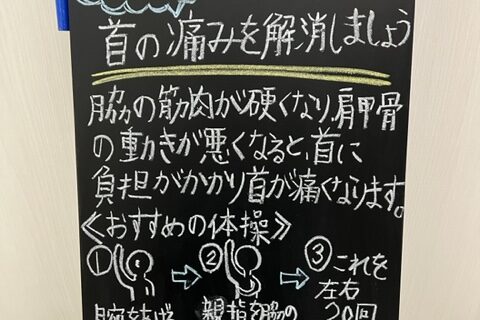 首の痛みを解消しましょう
脇の筋肉が硬くなり、肩甲骨
の動きが悪くなると、首に
負担がかかり首が痛くなります。
≪おすすめの体操≫
① ⇨ ② ⇨ ③ これを
左右
腕を
親指を脇の
20回